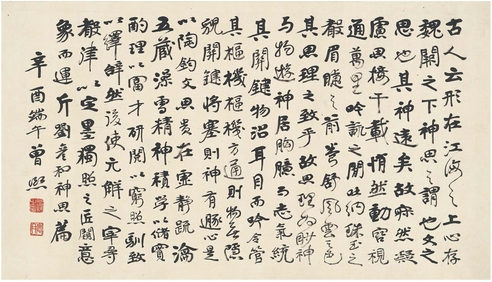 古人云形在江海之上心存
魏闕之下神思之謂也文之
思也其神遠矣故寂然凝
慮思接千載悄然動容視
通萬里吟詠之間吐納珠玉之
聲眉睫之前卷舒風雲之色
其思理之致乎故思理為妙神
与物遊神居胸臆而志氣統
其關鍵物沿耳目而令管
其樞機樞機方通則物無隱
貌關鍵將塞則神有心是
以陶鈞文思貴在虛靜疏瀹
五藏澡雪精神積學以儲寶
酌理以富才研閱以窮照馴致
以繹辭然後使元解之宰尋
聲律以定墨獨照之匠闚意
象而運斤劉彥和神思篇
辛酉端午曾熙